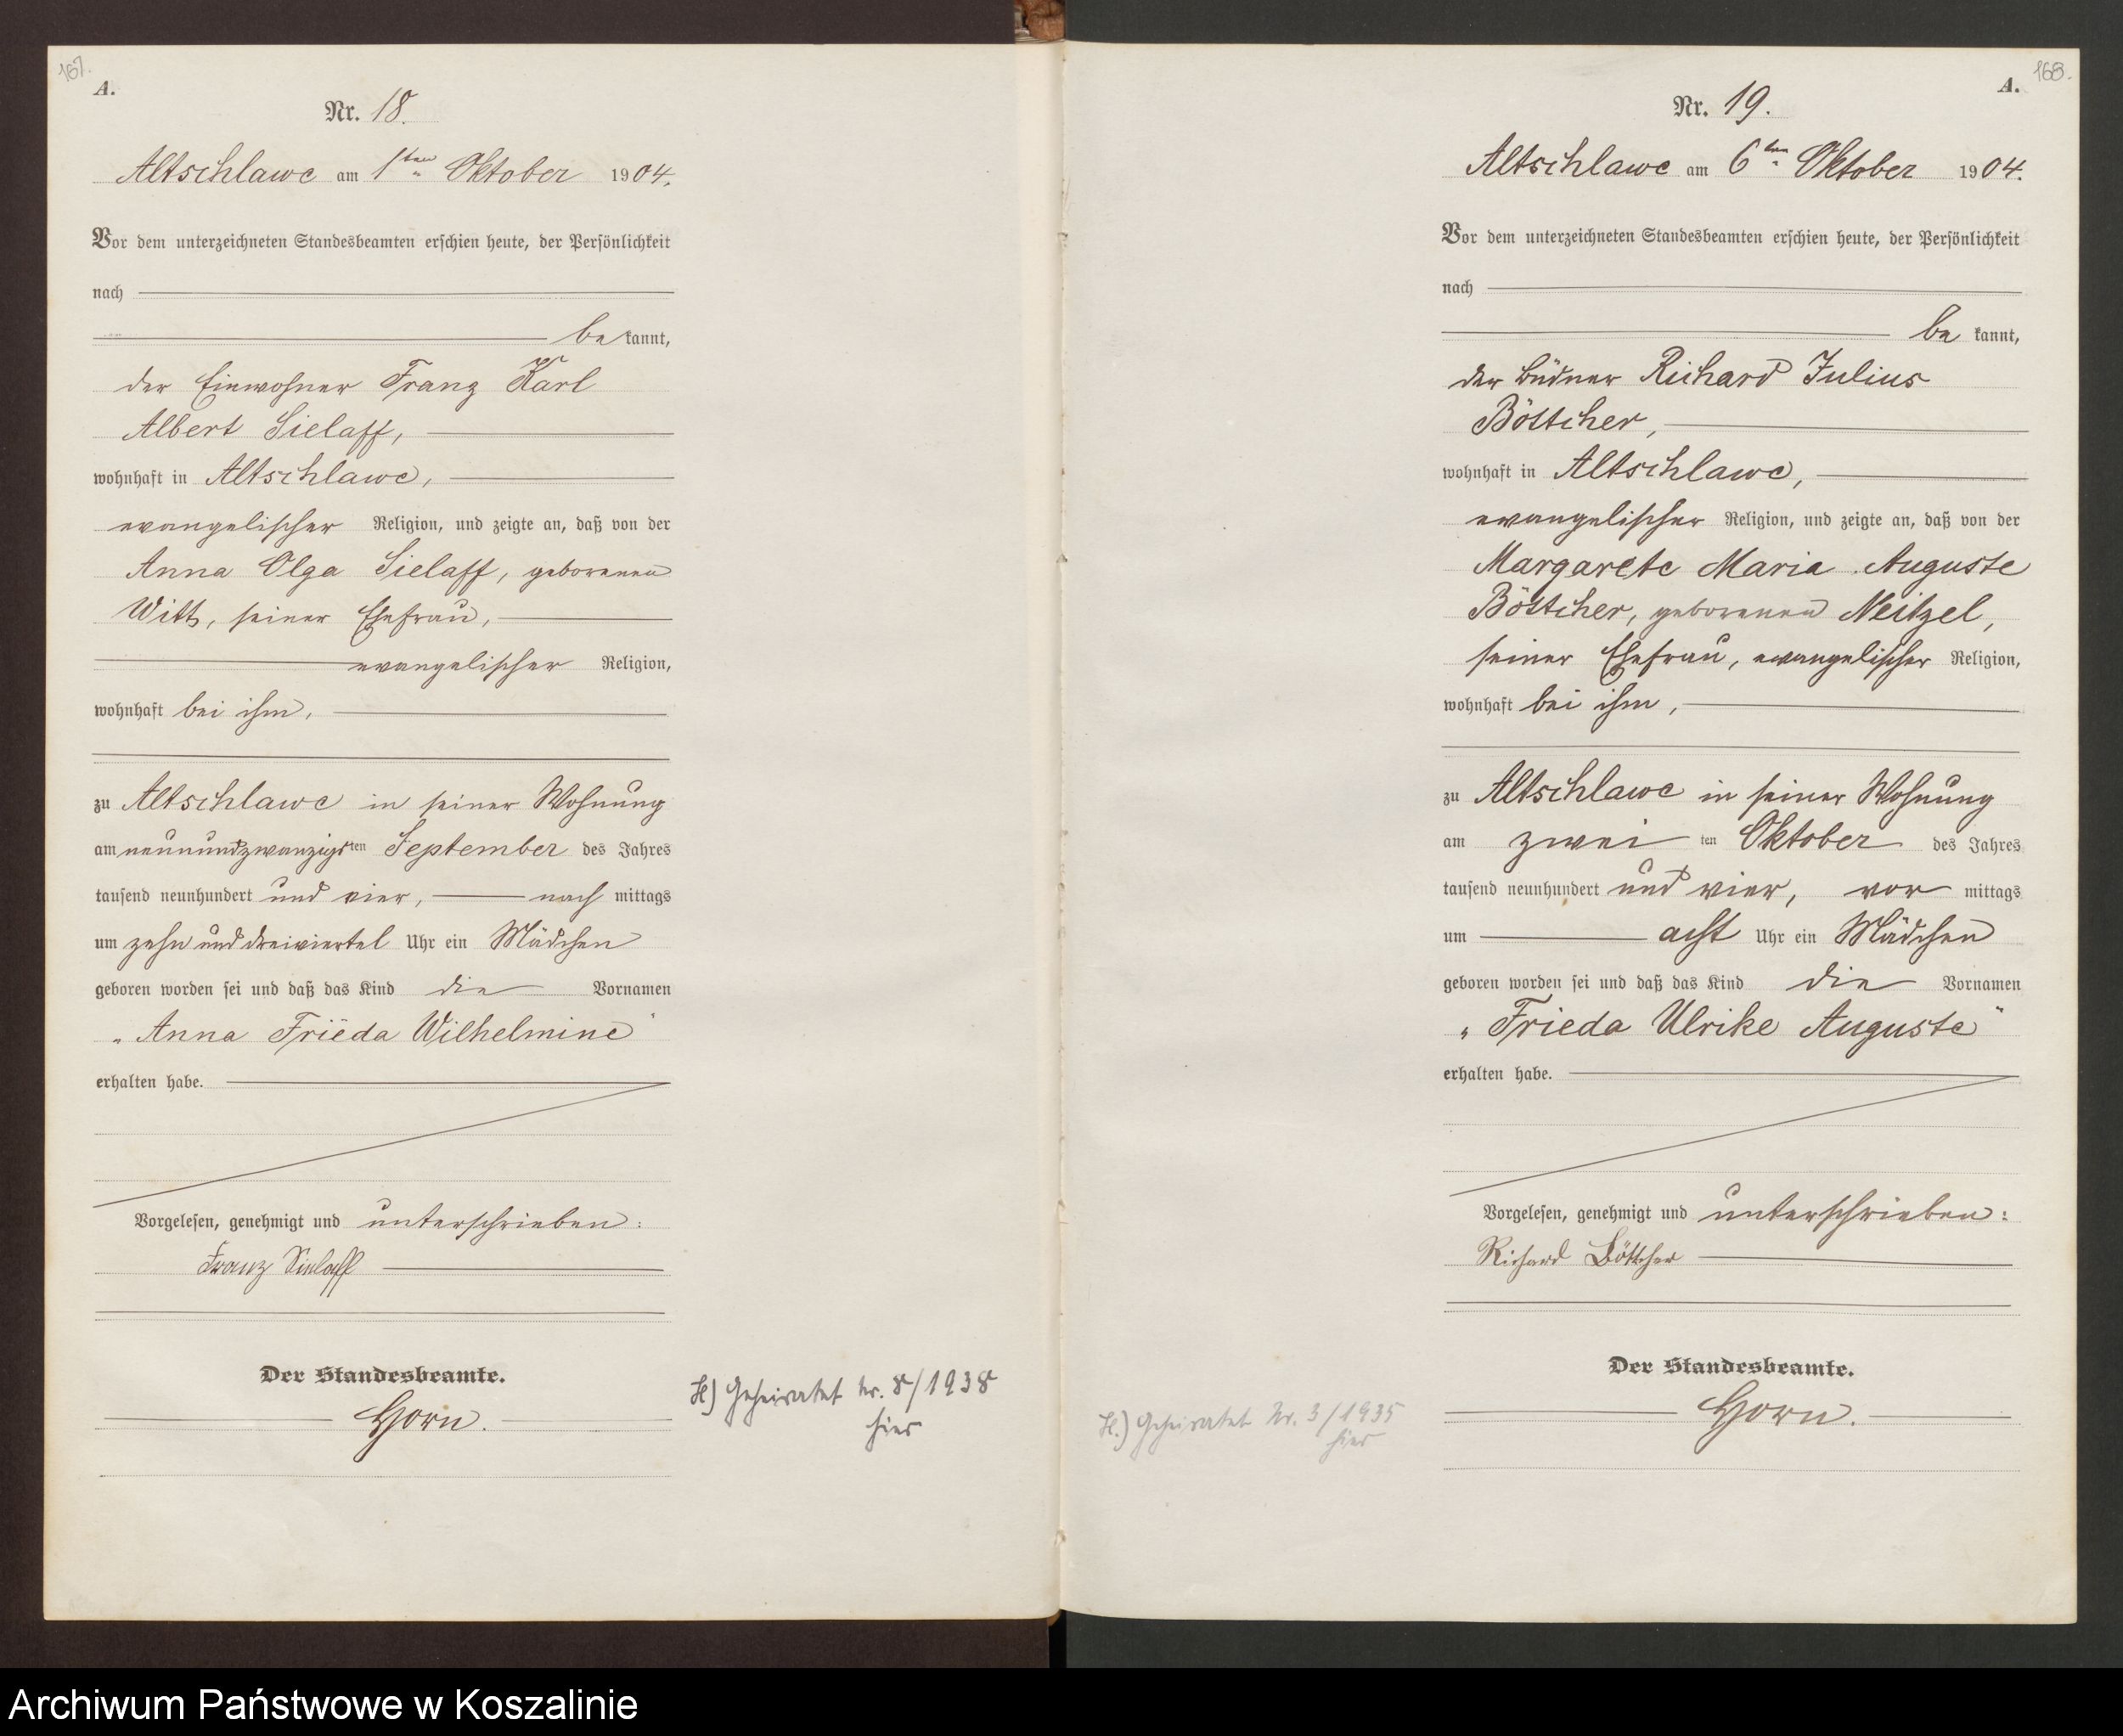 167.
A.
Nr. 18.
Altschlawe am 1ten Oktober 1904.
Vor dem unterzeichneten Standesbeamten erschien heute, der Persönlichkeit
nach
be kannt,
der Einwohner Franz Karl
Albert Sielaff,
wohnhaft in Altschlawe,
evangelischer Religion, und zeigte an, daß von der
Anna Olga Sielaff, geborenen
Witt, seiner Ehefrau,
evangelischer Religion,
wohnhaft bei ihm,
zu Altschlawe in seiner Wohnung
am neunundzwanzigsten September des Jahres
tausend neunhundert und vier, nach mittags
um zehn und dreiviertel Uhr ein Mädchen
geboren worden sei und daß das Kind die Vornamen
„Anna Frieda Wilhelmine“
erhalten habe.
Vorgelesen, genehmigt und unterschrieben:
Franz Sielaff
Der Standesbeamte.
Horn.
H) Geheiratet Nr. 8/1938
hier
168.
A.
Nr. 19.
Altschlawe am 6ten Oktober 1904.
Vor dem unterzeichneten Standesbeamten erschien heute, der Persönlichkeit
nach
be kannt,
der Büdner Richard Julius
Böttcher,
wohnhaft in Altschlawe,
evangelischer Religion, und zeigte an, daß von der
Margarete Maria Auguste
Böttcher, geborenen Neitzel,
seiner Ehefrau, evangelischer Religion,
wohnhaft bei ihm,
zu Altschlawe in seiner Wohnung
am zwei ten Oktober des Jahres
tausend neunhundert und vier, vor mittags
um acht Uhr ein Mädchen
geboren worden sei und daß das Kind die Vornamen
„Frieda Ulrike Auguste“
erhalten habe.
Vorgelesen, genehmigt und unterschrieben:
Richard Böttcher
Der Standesbeamte.
Horn.
H.) Geheiratet Nr. 3/1935
hier
Archiwum Państwowe w Koszalinie